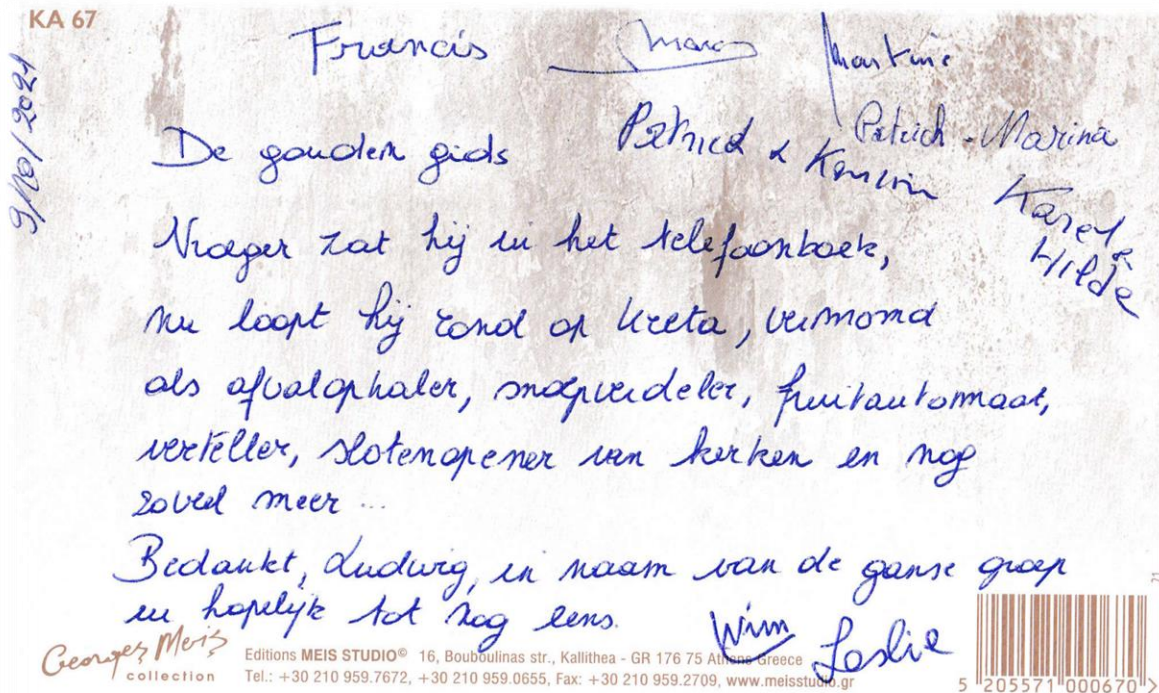 KA 67
9/10/2021
Francis
Marc
Martine
De gouden gids
Patrick & 
Patrick - Marina
Karel &
Hilde
Vroeger zat hij in het telefoonboek,
nu loopt hij rond op Kreta, vermomd
als afvalophaler, snoepverdeler, fruitautomaat,
verteller, slotenopener van kerken en nog
zoveel meer ...
Bedankt, Ludwig, in naam van de ganse groep
en hopelijk tot nog eens.
Wim
Leslie
Georges Meis
collection
Editions MEIS STUDIO© 16, Bouboulinas str., Kallithea - GR 176 75 Athens Greece
Tel.: +30 210 959.7672, +30 210 959.0655, Fax: +30 210 959.2709, www.meisstudio.gr
5 205571 000670 >